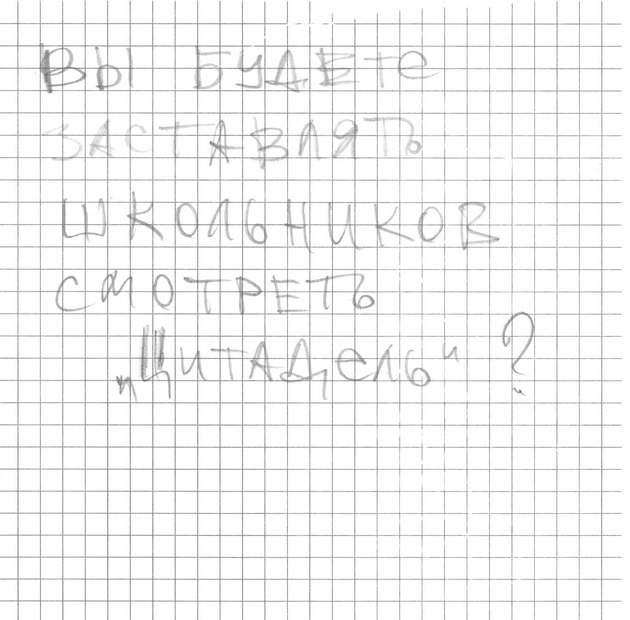 ВЫ БУДЕТЕ
ЗАСТАВЛЯТЬ
ШКОЛЬНИКОВ
СМОТРЕТЬ
„Цитадель“ ?